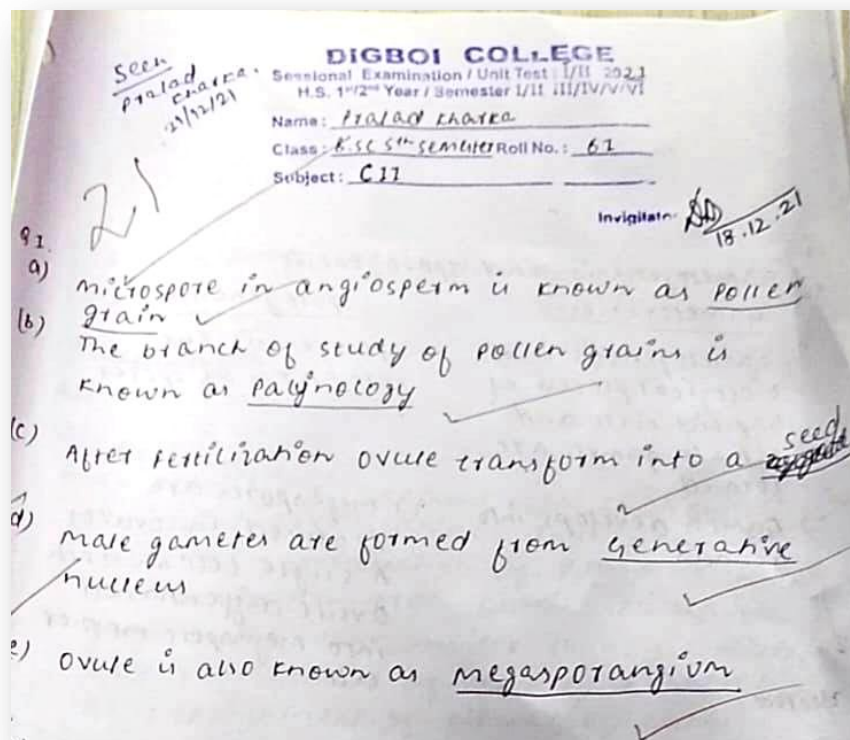 Seen
Pralad
Kharka.
21/12/21
DIGBOI COLLEGE
Sessional Examination / Unit Test : I/II 2021
H.S. 1st/2nd Year / Semester I/II III/IV/V/VI
Name: Pralad Kharka
Class: B.SC 5th semester Roll No.: 61
Subject: C11
21
Invigilator
18.12.21
Q1.
a) Microspore in angiosperm is known as pollen
grain
(b) The branch of study of pollen grains is
known as Palynology
(c) After fertilization ovule transform into a seed
d) Male gametes are formed from Generative
nucleus
e) Ovule is also known as megasporangium